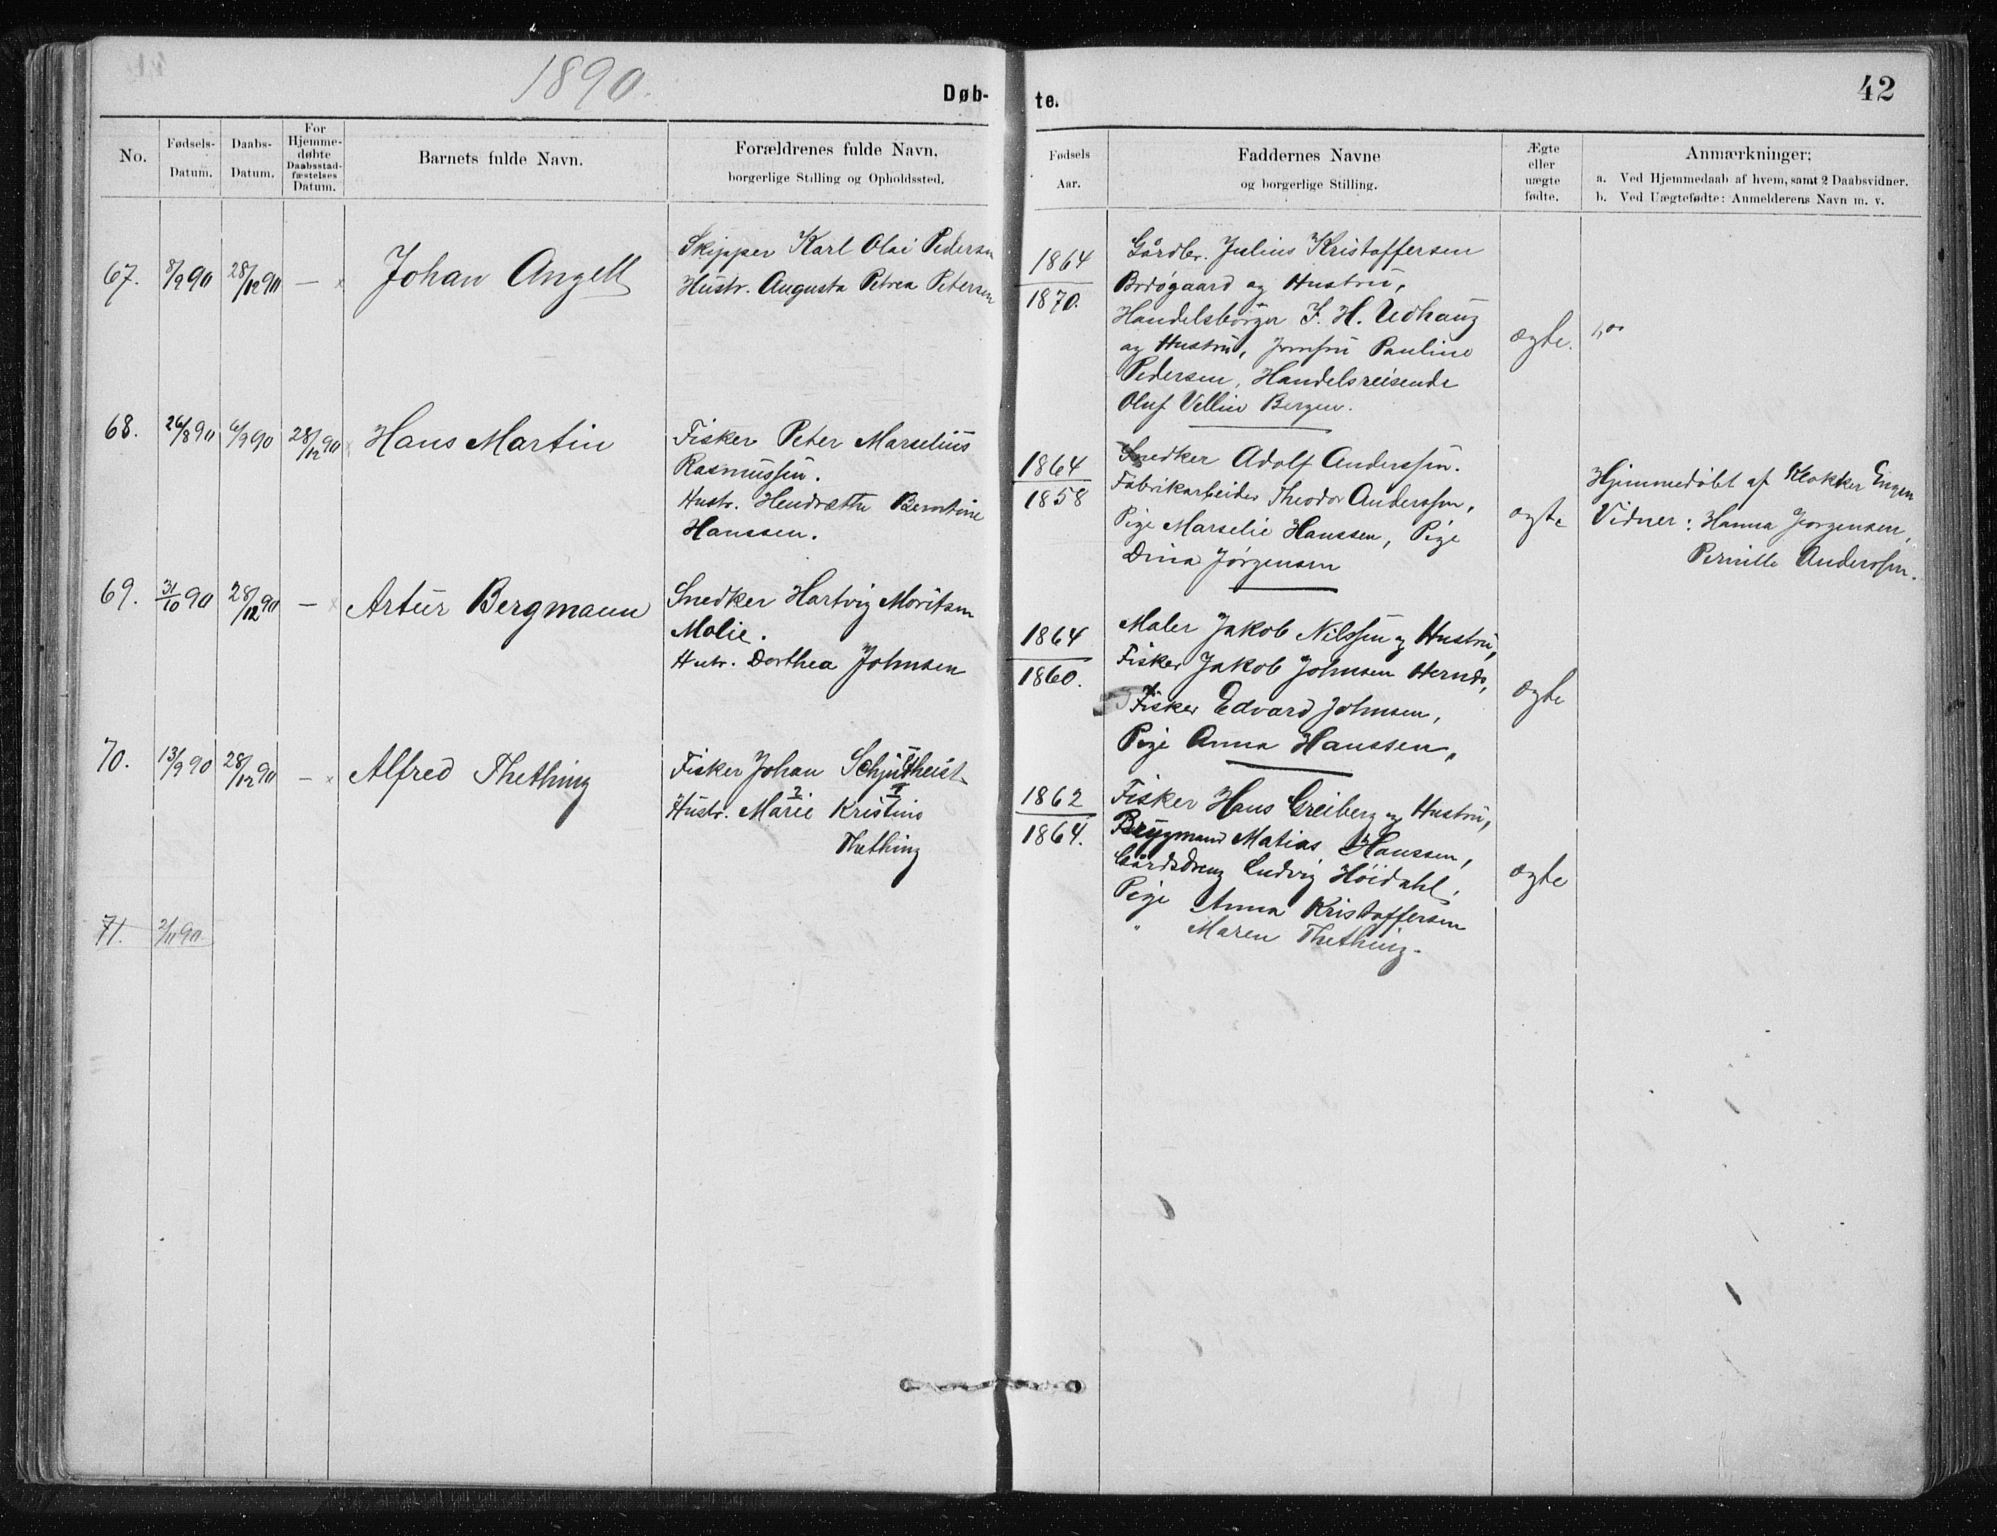 1890.
Døb-
te.
42
No.
Fødsels-
Datum.
Daabs-
Datum.
For
Hjemme-
døbte
Daabsstad-
fæstelses
Datum.
Barnets fulde Navn.
Forældrenes fulde Navn,
borgerlige Stilling og Opholdssted.
Fødsels
Aar.
Faddernes Navne
og borgerlige Stilling.
Ægte
eller
uægte
fødte.
Anmærkninger:
a. Ved Hjemmedaab af hvem, samt 2 Daabsvidner.
b. Ved Uægtefødte: Anmelderens Navn m. v.
67. 8/9 90 28/12 90 — Johan Angell
Skipper Karl Olai Pedersen
Hustr. Augusta Petrea Petersen
1864
1870.
Gårdbr. Julius Kristoffersen
og Hustru,
Handelsborger J. H. Udhaug
og Hustru, Jomfru Pauline
Pedersen, Handelsreisende
Oluf Vellin Bergen.
ægte.
68. 26/8 90 6/9 90 28/12 90 Hans Martin
Fisker Peter Marselius
Rasmussen.
Hustr. Hendrætte Berntine
Hanssen.
1864
1858
Snedker Adolf Anderssen.
Fabrikarbeider Theodor Anderssen,
Pige Marselie Hanssen, Pige
Dina Jørgensen
ægte
Hjemmedøbt af Klokker Engen
Vidner: Hanna Jørgensen,
Pernille Anderssen.
69. 31/10 90 28/12 90 — Artur Bergmann
Snedker Hartvig Moritsen
Molie.
Hustr. Dorthea Johnsen
1864
1860.
Maler Jakob Nilssen og Hustru,
Fisker Jakob Johnsen
Fisker Edvard Johnsen,
Pige Anna Hanssen,
ægte
70. 13/9 90 28/12 90 — Alfred Thething
Fisker Johan Schjultheist
2 1
Hustr. Marie Kristine
Thething
1862
1864.
Fisker Hans Greiberg og Hustru,
Brygmand Matias Hanssen,
Gårdsdreng Ludvig Höidahl,
Pige Anna Kristoffersen
" Maren Thething.
ægte
71. 2/11 90.